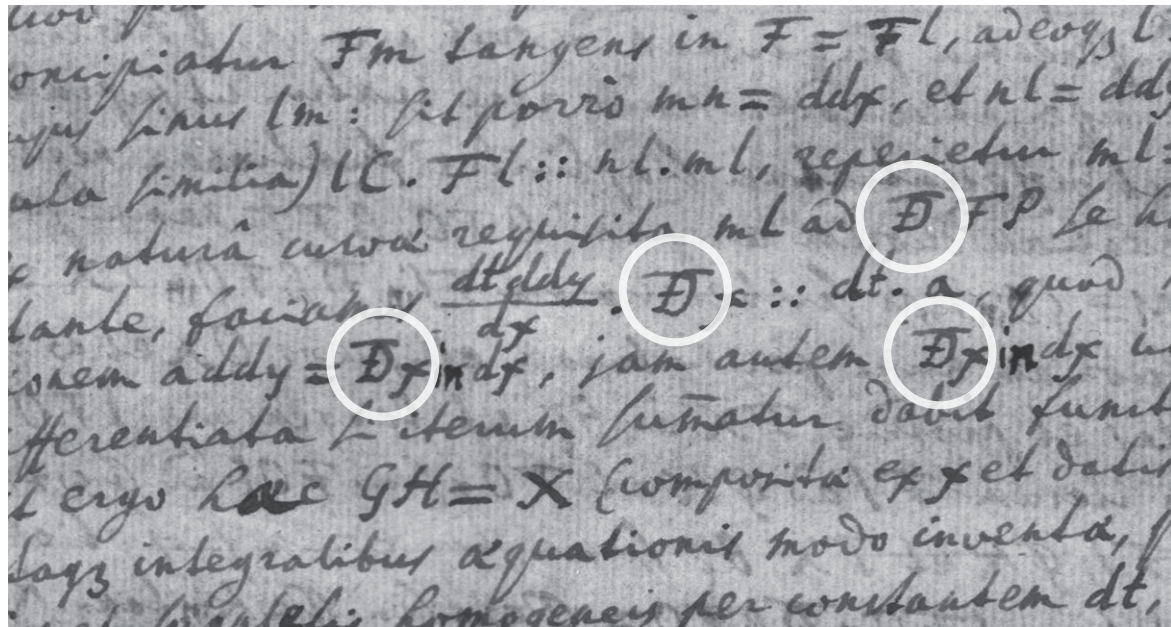 oncipiatur Fm tangens in F = Fl, adeoqꝫ l
ujus sinus lm: sit porrò mn = ddx, et nl = ddy
similia) lC. Fl :: nl. ml, reperietur ml =
naturâ curvæ requisita ml ad Đ FP se
dante, faciam dtddy/dx . Đ x :: dt. a, quod
onem addy = Đx in dx, jam autem Đx in dx
fferentiata iterum sum̄atur dabit
ergo hæc GH = X (composita ex x et datis
integralibus æquationis modo inventa,
homogeneis per constantem dt,